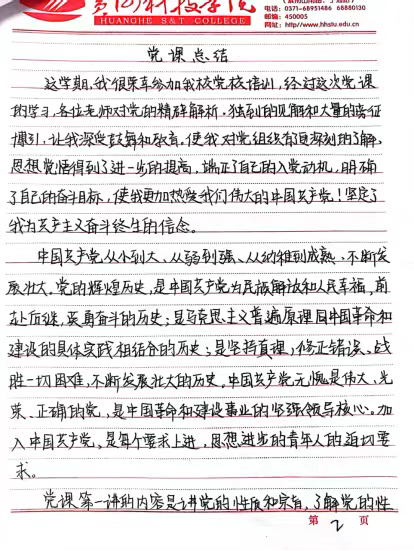 黄河科技学院
HUANGHE S&T COLLEGE
电话：0371-68951486 66880130
邮编：450005
网址：http://www.hhstu.edu.cn
党课总结
这学期，我很荣幸参加我校党校培训，经过这次党课
的学习，各位老师对党的精辟解析，独到的见解和大量的旁征
博引，让我深受鼓舞和教育，使我对党组织有更深刻的了解，
思想觉悟得到了进一步的提高，端正了自己的入党动机，明确
了自己的奋斗目标，使我更加热爱我们伟大的中国共产党！坚定了
我为共产主义奋斗终生的信念。
中国共产党从小到大、从弱到强、从幼稚到成熟、不断发
展壮大。党的辉煌历史，是中国共产党为民族解放和人民幸福，前
赴后继，英勇奋斗的历史；是马克思主义普遍原理同中国革命和
建设的具体实践相结合的历史；是坚持真理，修正错误、战
胜一切困难，不断发展壮大的历史。中国共产党无愧是伟大、光
荣、正确的党，是中国革命和建设事业的坚强领导核心。加
入中国共产党、是每个要求上进，思想进步的青年人的迫切要
求。
党课第一讲的内容是讲党的性质和宗旨，了解党的性
第 2 页